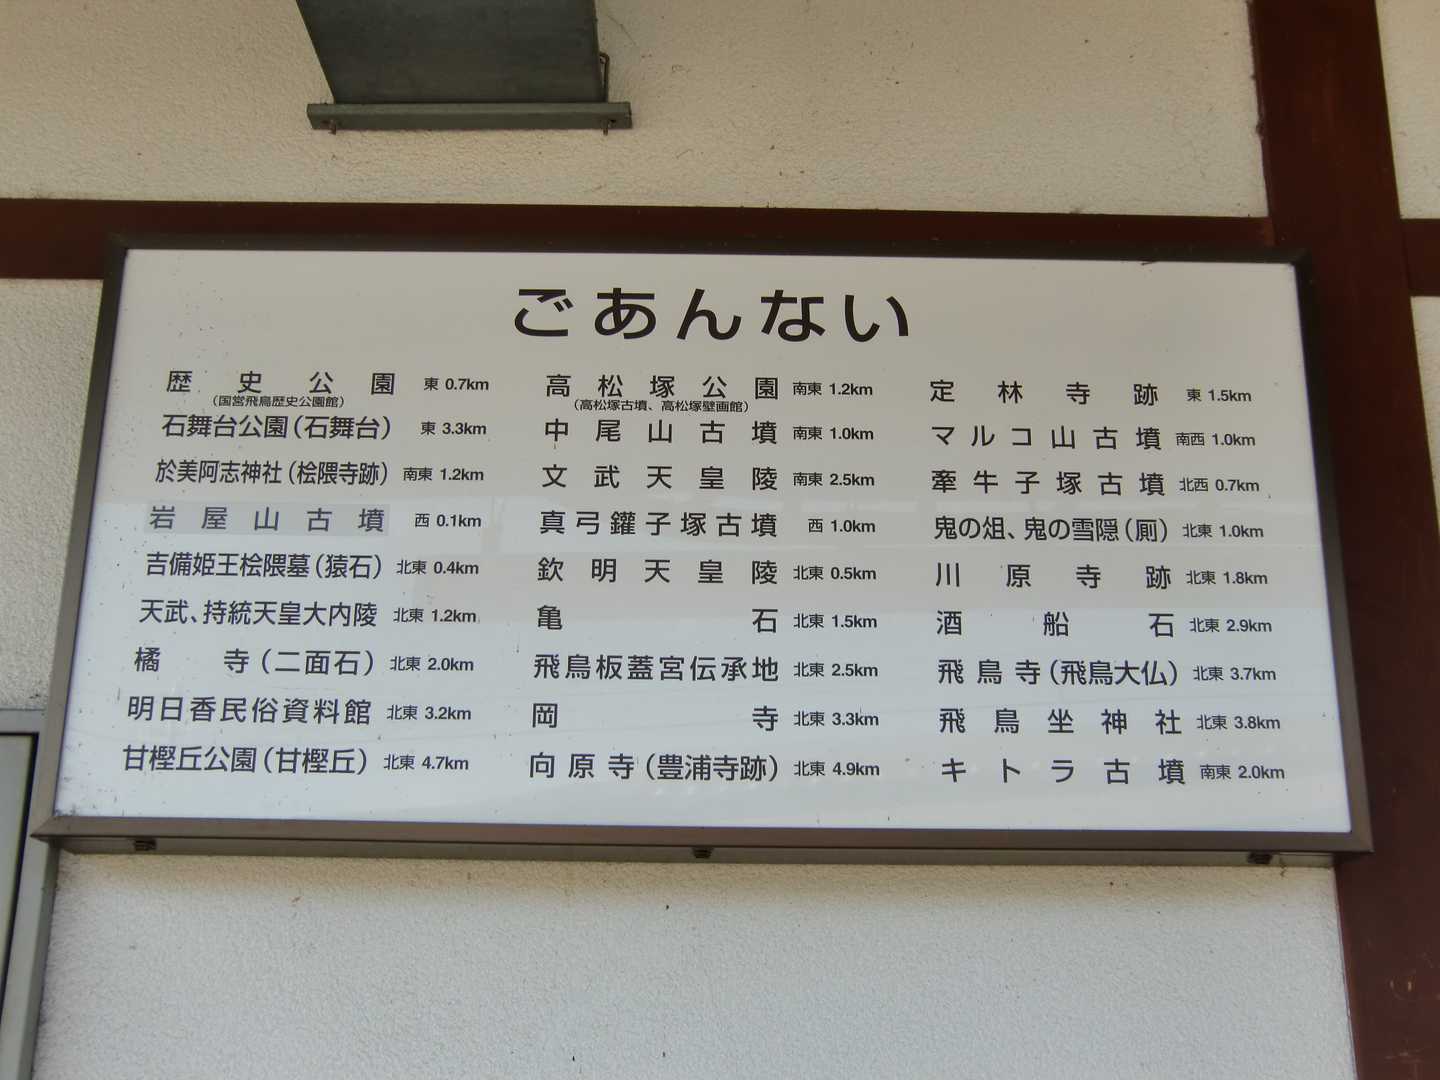 ごあんない
歴史公園 東 0.7km
（国営飛鳥歴史公園館）
石舞台公園（石舞台） 東 3.3km
於美阿志神社（桧隈寺跡） 南東 1.2km
岩屋山古墳 西 0.1km
吉備姫王桧隈墓（猿石） 北東 0.4km
天武、持統天皇大内陵 北東 1.2km
橘寺（二面石） 北東 2.0km
明日香民俗資料館 北東 3.2km
甘樫丘公園（甘樫丘） 北東 4.7km
高松塚公園 南東 1.2km
（高松塚古墳、高松塚壁画館）
中尾山古墳 南東 1.0km
文武天皇陵 南東 2.5km
真弓鑵子塚古墳 西 1.0km
欽明天皇陵 北東 0.5km
亀石 北東 1.5km
飛鳥板蓋宮伝承地 北東 2.5km
岡寺 北東 3.3km
向原寺（豊浦寺跡） 北東 4.9km
定林寺跡 東 1.5km
マルコ山古墳 南西 1.0km
牽牛子塚古墳 北西 0.7km
鬼の俎、鬼の雪隠（厠） 北東 1.0km
川原寺跡 北東 1.8km
酒船石 北東 2.9km
飛鳥寺（飛鳥大仏） 北東 3.7km
飛鳥坐神社 北東 3.8km
キトラ古墳 南東 2.0km